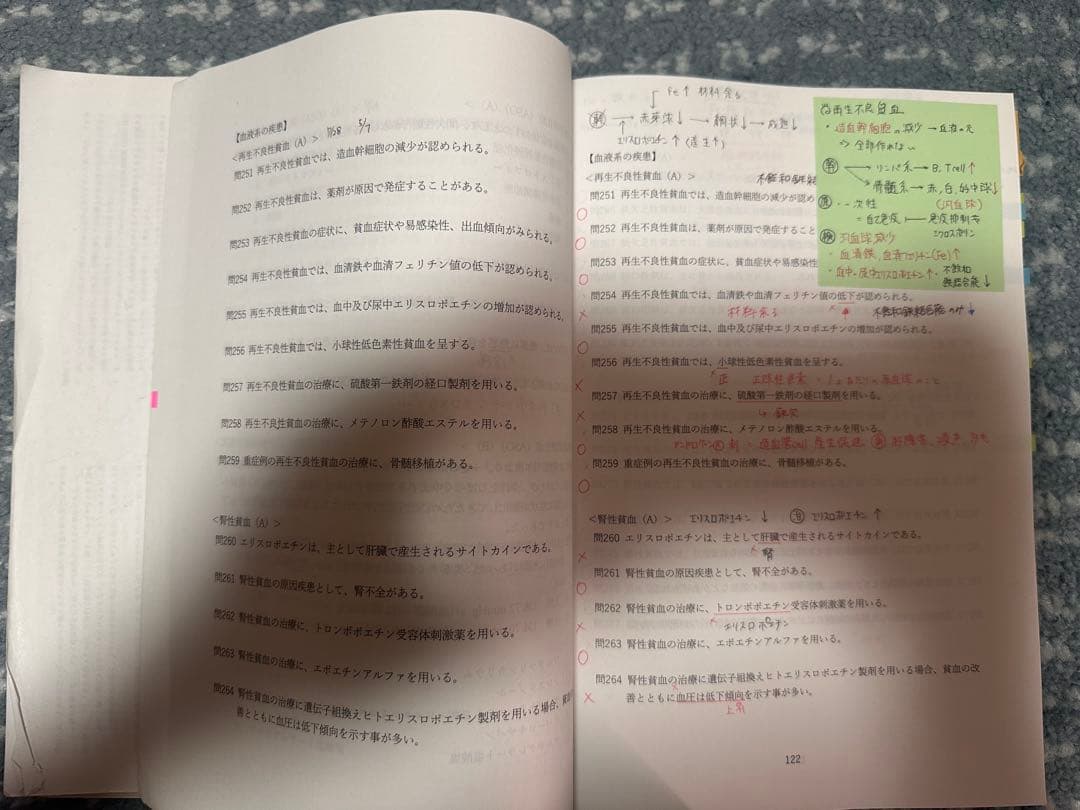 【血液系の疾患】
<再生不良性貧血(A)> 5/7
問251 再生不良性貧血では、造血幹細胞の減少が認められる。
問252 再生不良性貧血は、薬剤が原因で発症することがある。
問253 再生不良性貧血の症状に、貧血症状や易感染性、出血傾向がみられる。
問254 再生不良性貧血では、血清鉄や血清フェリチン値の低下が認められる。
問255 再生不良性貧血では、血中及び尿中エリスロポエチンの増加が認められる。
問256 再生不良性貧血では、小球性低色素性貧血を呈する。
問257 再生不良性貧血の治療に、硫酸第一鉄剤の経口製剤を用いる。
問258 再生不良性貧血の治療に、メテノロン酢酸エステルを用いる。
問259 重症例の再生不良性貧血の治療に、骨髄移植がある。
<腎性貧血(A)>
問260 エリスロポエチンは、主として肝臓で産生されるサイトカインである。
問261 腎性貧血の原因疾患として、腎不全がある。
問262 腎性貧血の治療に、トロンボポエチン受容体刺激薬を用いる。
問263 腎性貧血の治療に、エポエチンアルファを用いる。
問264 腎性貧血の治療に遺伝子組換えヒトエリスロポエチン製剤を用いる場合、貧
善とともに血圧は低下傾向を示す事が多い。
Fe↑ 材料余る
→ 赤芽球↓ → 網状↓ → 成熟↓
エリスロポエチン↑(産生↑)
【血液系の疾患】
<再生不良性貧血(A)> 不飽和鉄結
問251 再生不良性貧血では、造血幹細胞の減少が認め
○
問252 再生不良性貧血は、薬剤が原因で発症すること
○
問253 再生不良性貧血の症状に、貧血症状や易感染性
○
問254 再生不良性貧血では、血清鉄や血清フェリチン値の低下が認められる。
× 材料余る × 不飽和鉄結合能のみ↓
問255 再生不良性貧血では、血中及び尿中エリスロポエチンの増加が認められる。
○
問256 再生不良性貧血では、小球性低色素性貧血を呈する。
× 正 正球性正色素
問257 再生不良性貧血の治療に、硫酸第一鉄剤の経口製剤を用いる。
× 鉄欠
問258 再生不良性貧血の治療に、メテノロン酢酸エステルを用いる。
○ 産生促進 副 肝障害
問259 重症例の再生不良性貧血の治療に、骨髄移植がある。
○
<腎性貧血(A)> エリスロポエチン↓ エリスロポエチン↑
問260 エリスロポエチンは、主として肝臓で産生されるサイトカインである。
× × 腎
問261 腎性貧血の原因疾患として、腎不全がある。
○
問262 腎性貧血の治療に、トロンボポエチン受容体刺激薬を用いる。
× × エリスロポエチン
問263 腎性貧血の治療に、エポエチンアルファを用いる。
○
問264 腎性貧血の治療に遺伝子組換えヒトエリスロポエチン製剤を用いる場合、貧血の改
× 善とともに血圧は低下傾向を示す事が多い。
上昇
122
再生不良貧血
・造血幹細胞の減少→血液の元
⇒全部作れない
→ リンパ系→B,Tcell↑
骨髄系→赤,白,的中球↓
(汎血球)
一次性
=自己免疫 免疫抑制
シクロスポリン
検 汎血球減少
・血清鉄,血清フェリチン(Fe)↑
・血中・尿中エリスロポエチン↑・不飽和
鉄結合能↓